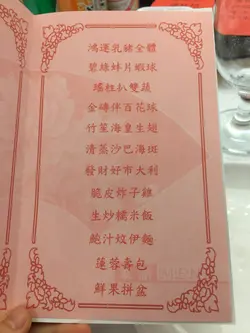 鴻運乳豬全體
碧綠蚌片蝦球
瑤柱扒雙蔬
金磚伴百花球
竹笙海皇生翅
清蒸沙巴海斑
發財好市大利
脆皮炸子雞
生炒糯米飯
鮑汁炆伊麵
蓮蓉壽包
鮮果拼盆